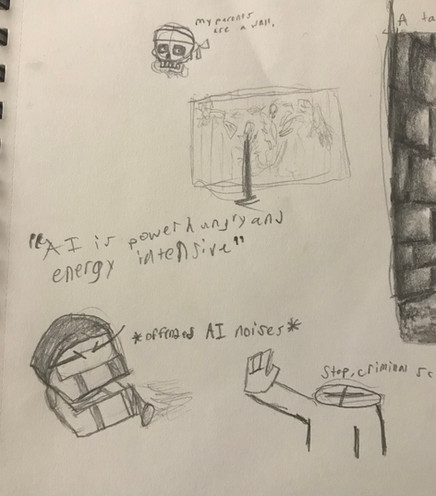 my parents
are a wall.
A ta
"AI is power hungry and
energy intensive"
*offended AI noises*
Stop, criminal sc